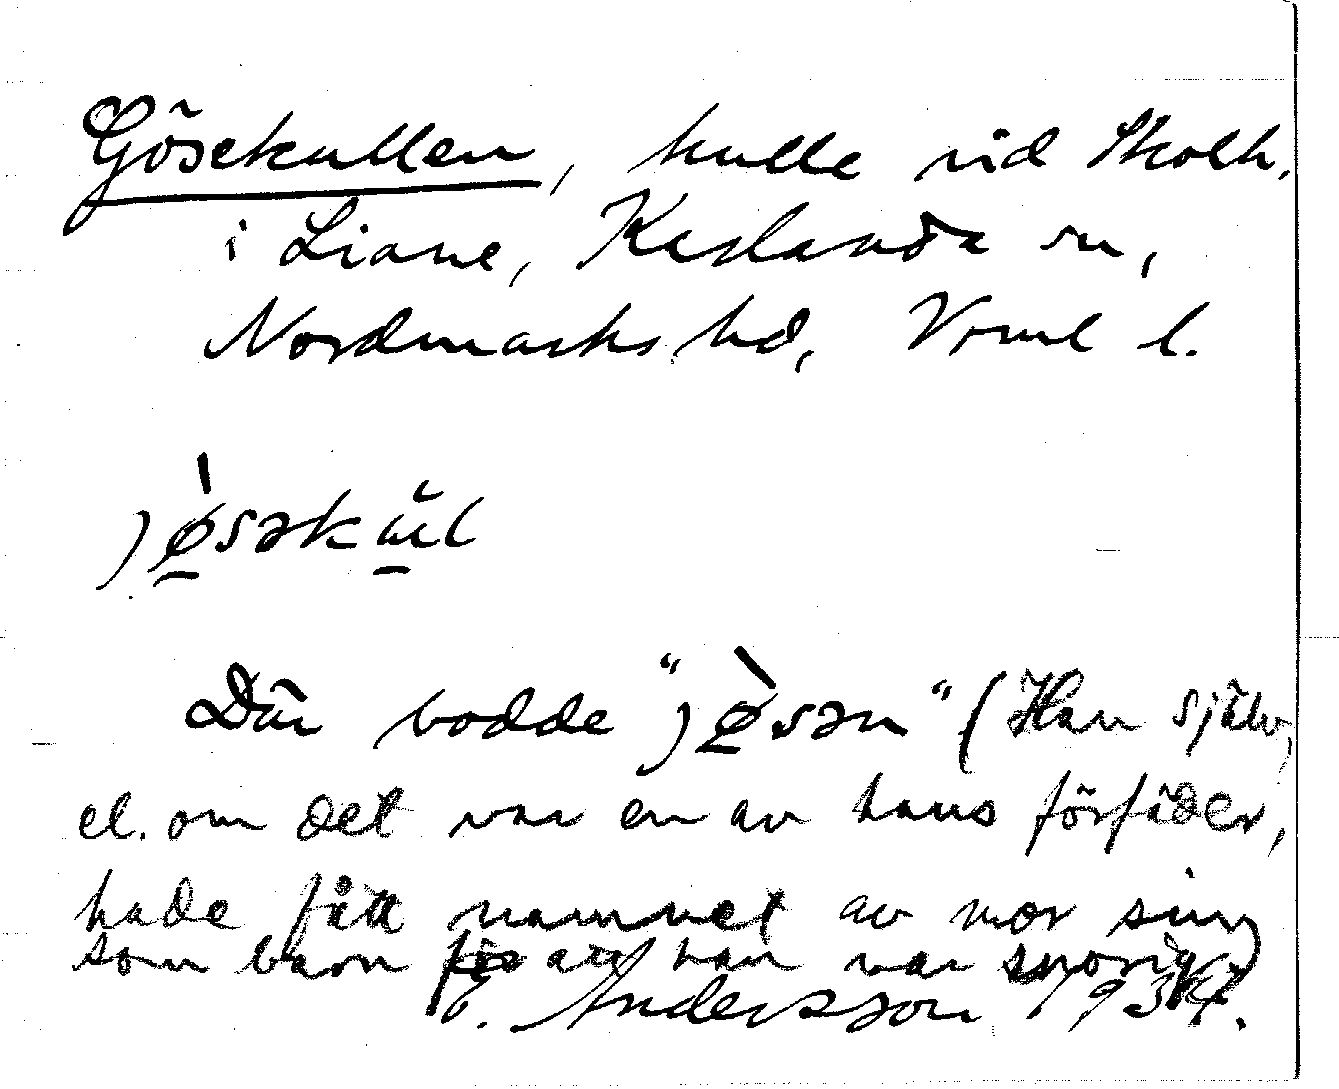 Gösekullen, kulle vid Skolh.
i Liane, Karlanda sn,
Nordmarks hd, Vrml l.
jø̀səkŭl
Där bodde "jø̀sən" (Han själv,
el. om det var en av hans förfäder,
hade fått namnet av mor sin
som barn för att han var snorig)
E. Andersson 1934.